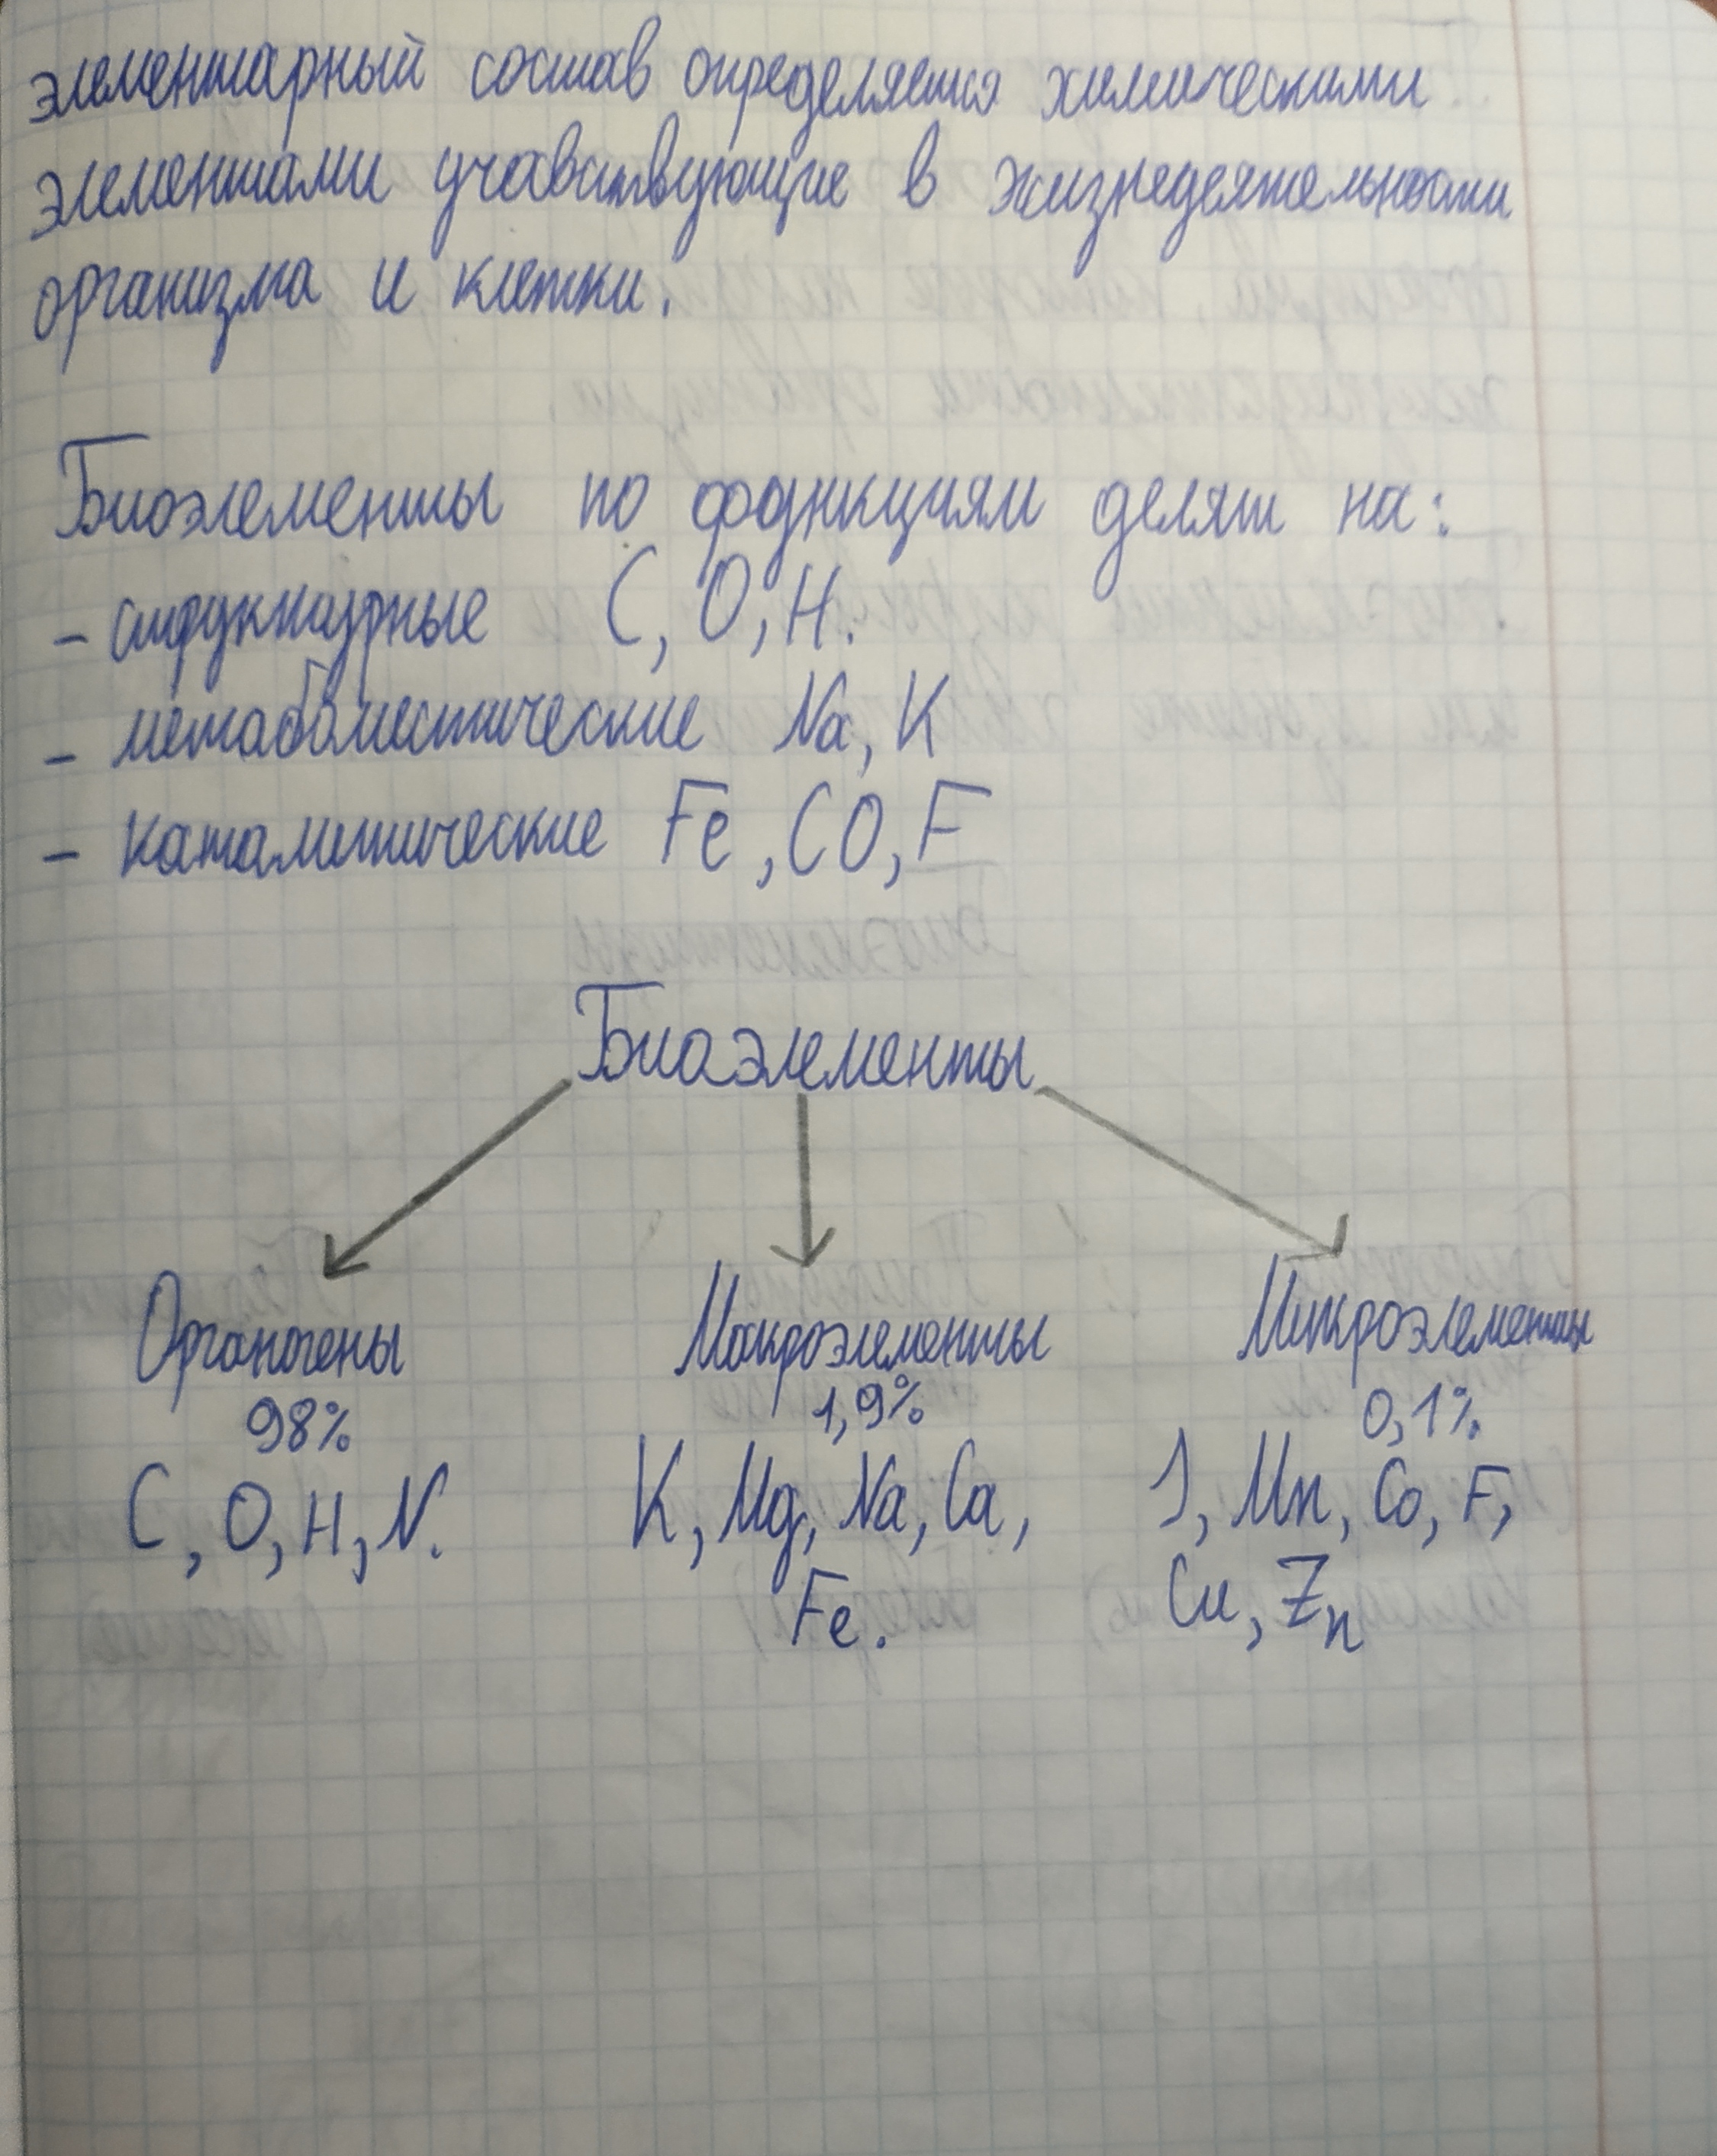 элементарный состав определяется химическими
элементами учавствующие в жизнедеятельности
организма и клетки.
Биоэлементы по функциям делят на:
- структурные C, O, H.
- метаболистические Na, K
- каталитические Fe, CO, F
Биоэлементы
Органогены Макроэлементы Микроэлементы
98% 1,9% 0,1%
C, O, H, N. K, Mg, Na, Ca, J, Mn, Co, F,
Fe. Cu, Zn